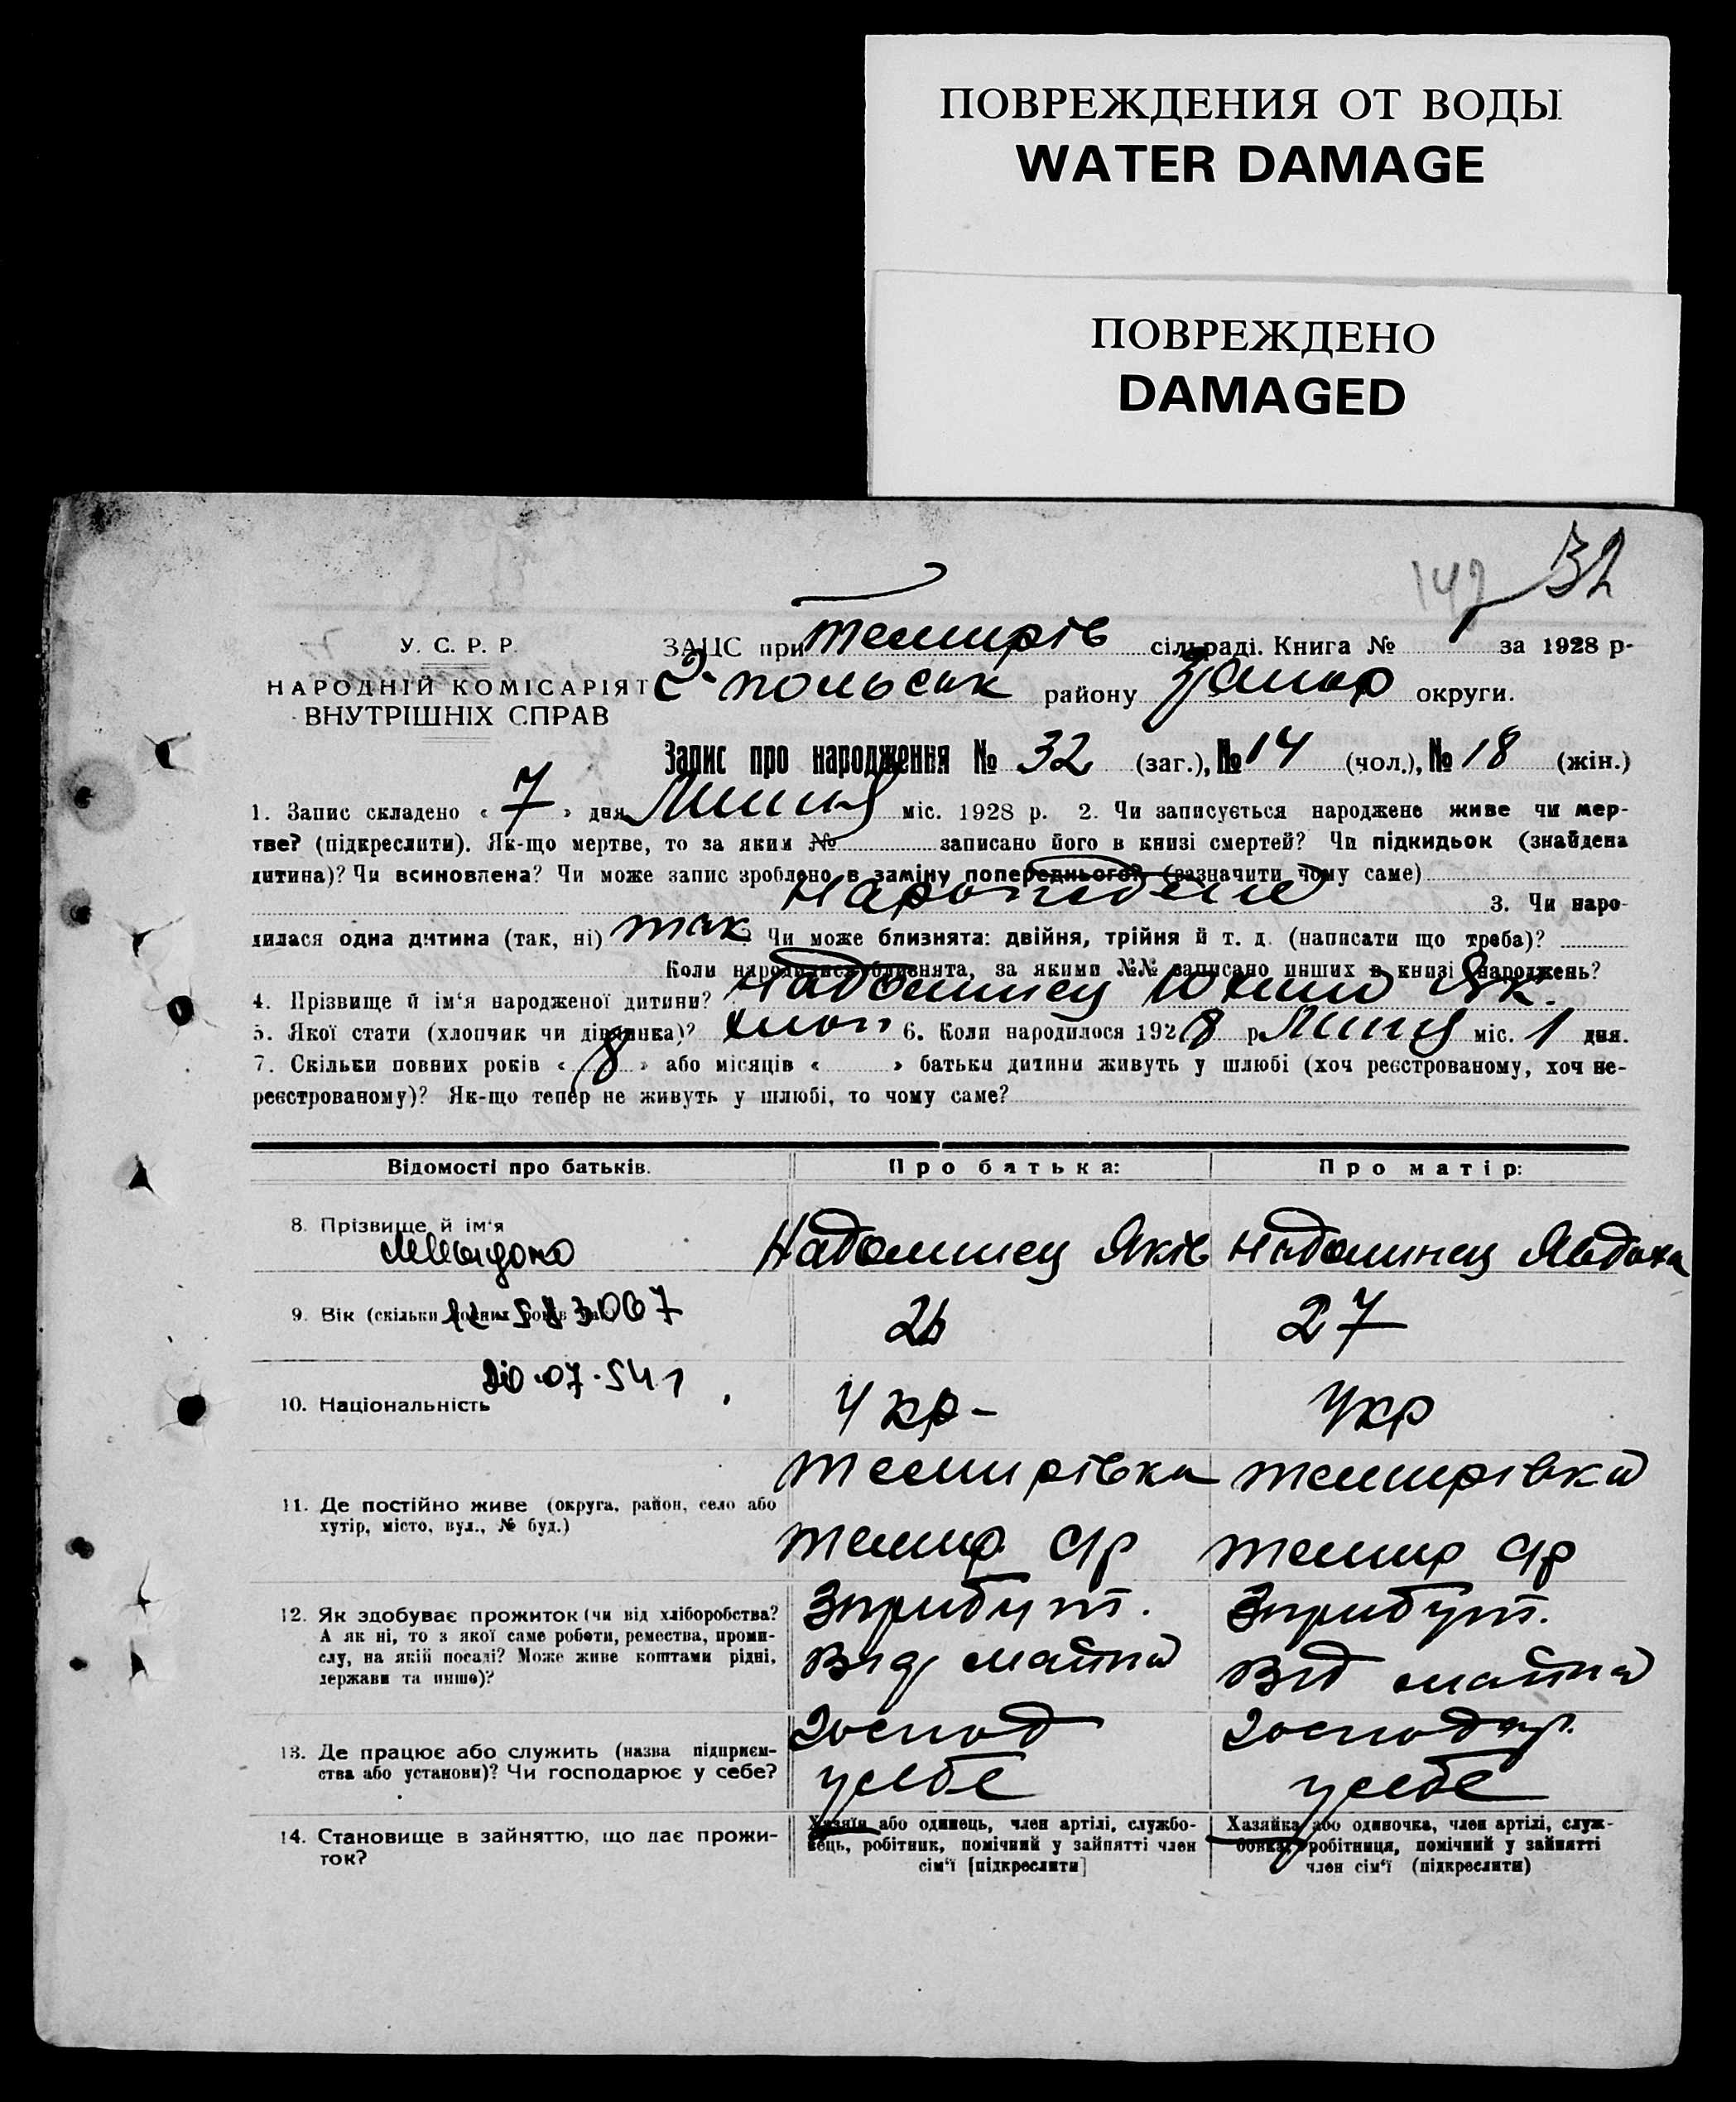 ПОВРЕЖДЕНИЯ ОТ ВОДЫ
WATER DAMAGE
ПОВРЕЖДЕНО
DAMAGED
147 32
У. С. Р. Р.
НАРОДНІЙ КОМІСАРІЯТ
ВНУТРІШНІХ СПРАВ
ЗАЦС при Темирів сільраді. Книга № за 1928 р.
Г-польськ району Запор округи.
Запис про народження № 32 (заг.), № 14 (чол.), № 18 (жін.)
1. Запис складено « 7 » дня Липня міс. 1928 р. 2. Чи записується народжене живе чи мер-
тве? (підкреслити). Як-що мертве, то за яким № записано його в книзі смертей? Чи підкидьок (знайдена
дитина)? Чи всиновлена? Чи може запис зроблено в заміну попереднього? (зазначити чому саме)
Народжене 3. Чи наро-
дилася одна дитина (так, ні) так Чи може близнята: двійня, трійня й т. д. (написати що треба)?
Коли народилися близнята, за якими №№ записано инших в книзі народжень?
4. Прізвище й ім'я народженої дитини? Надолинец Юхим Як.
5. Якої стати (хлопчик чи дівчинка)? хлоп 6. Коли народилося 1928 р Липня міс. 1 дня.
7. Скільки повних років « 8 » або місяців « » батьки дитини живуть у шлюбі (хоч реєстрованому, хоч не-
реєстрованому)? Як-що тепер не живуть у шлюбі, то чому саме?
Відомості про батьків. Про батька: Про матір:
8. Прізвище й ім'я Надолинец Яків Надолинец Явдоха
9. Вік (скільки повних років 26 27
20.07.541
10. Національність Укр- Укр
Темирівка Темирівка
11. Де постійно живе (округа, район, село або
хутір, місто, вул., № буд.)
Темир С/р Темир С/р
12. Як здобуває прожиток (чи від хліборобства? Зприбут. Зприбут.
А як ні, то з якої саме роботи, ремества, проми-
слу, на якій посаді? Може живе коштами рідні, Від майна Від майна
держави та инше)?
Господ Господар.
13. Де працює або служить (назва підприєм-
ства або установи)? Чи господарює у себе? у себе у себе
14. Становище в зайняттю, що дає прожи-
ток?
Хазяїн або одинець, член артілі, службо-
вець, робітник, помічний у зайнятті член
сім'ї [підкреслити]
Хазяйка або одиночка, член артілі, служ-
бовка, робітниця, помічний у зайнятті
член сім'ї (підкреслити)